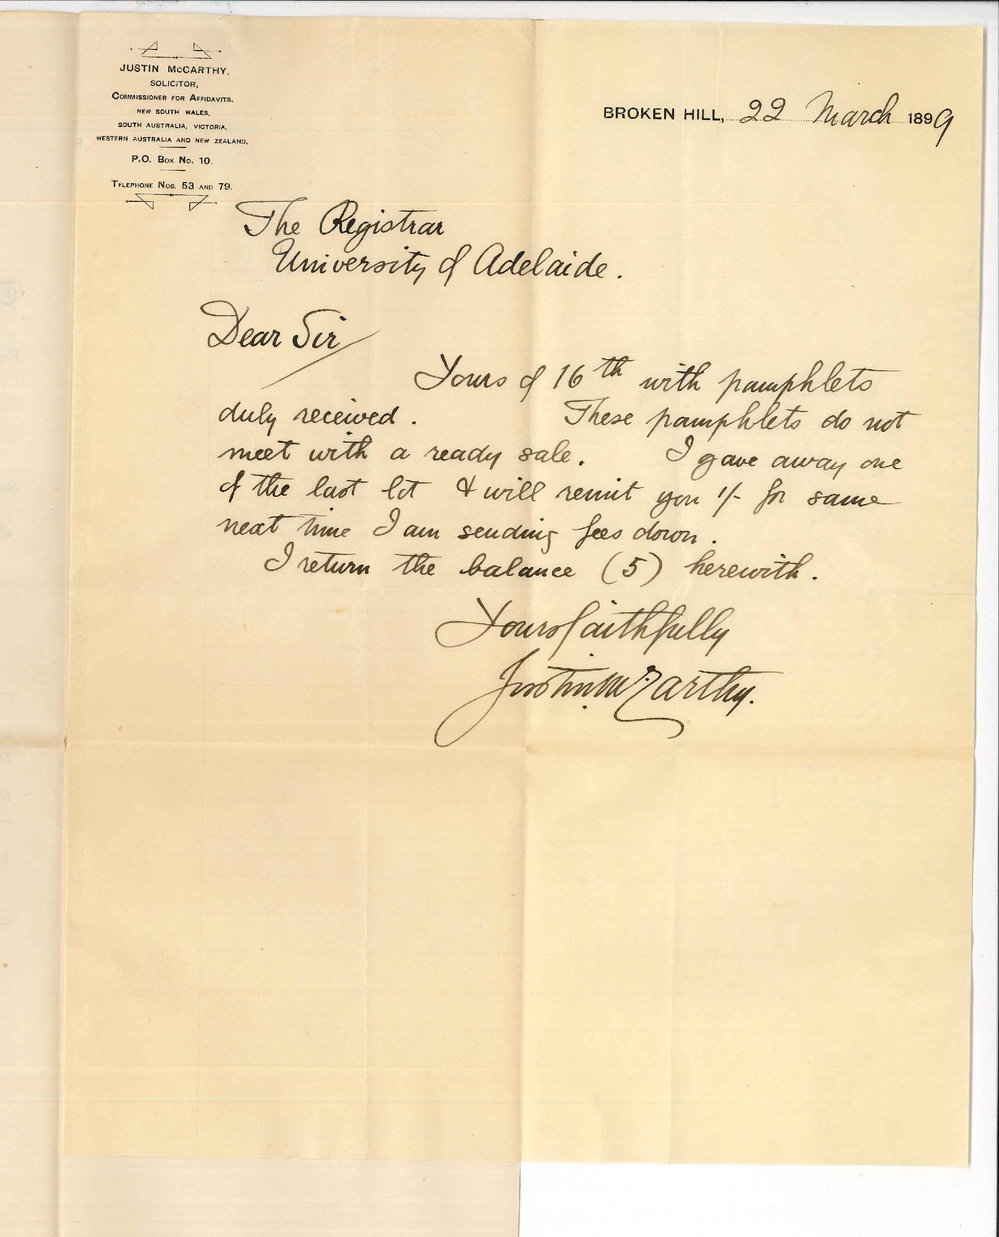 JUSTIN McCARTHY,
SOLICITOR,
COMMISSIONER FOR AFFIDAVITS.
NEW SOUTH WALES,
SOUTH AUSTRALIA, VICTORIA,
WESTERN AUSTRALIA AND NEW ZEALAND.
P.O. Box No. 10.
TELEPHONE Nos. 53 AND 79.
BROKEN HILL, 22 March 1899
The Registrar
University of Adelaide.
Dear Sir
Yours of 16th with pamphlets
duly received. These pamphlets do not
meet with a ready sale. I gave away one
of the last lot & will remit you 1/- for same
next time I am sending fees down.
I return the balance (5) herewith.
Yours faithfully
Justin McCarthy.